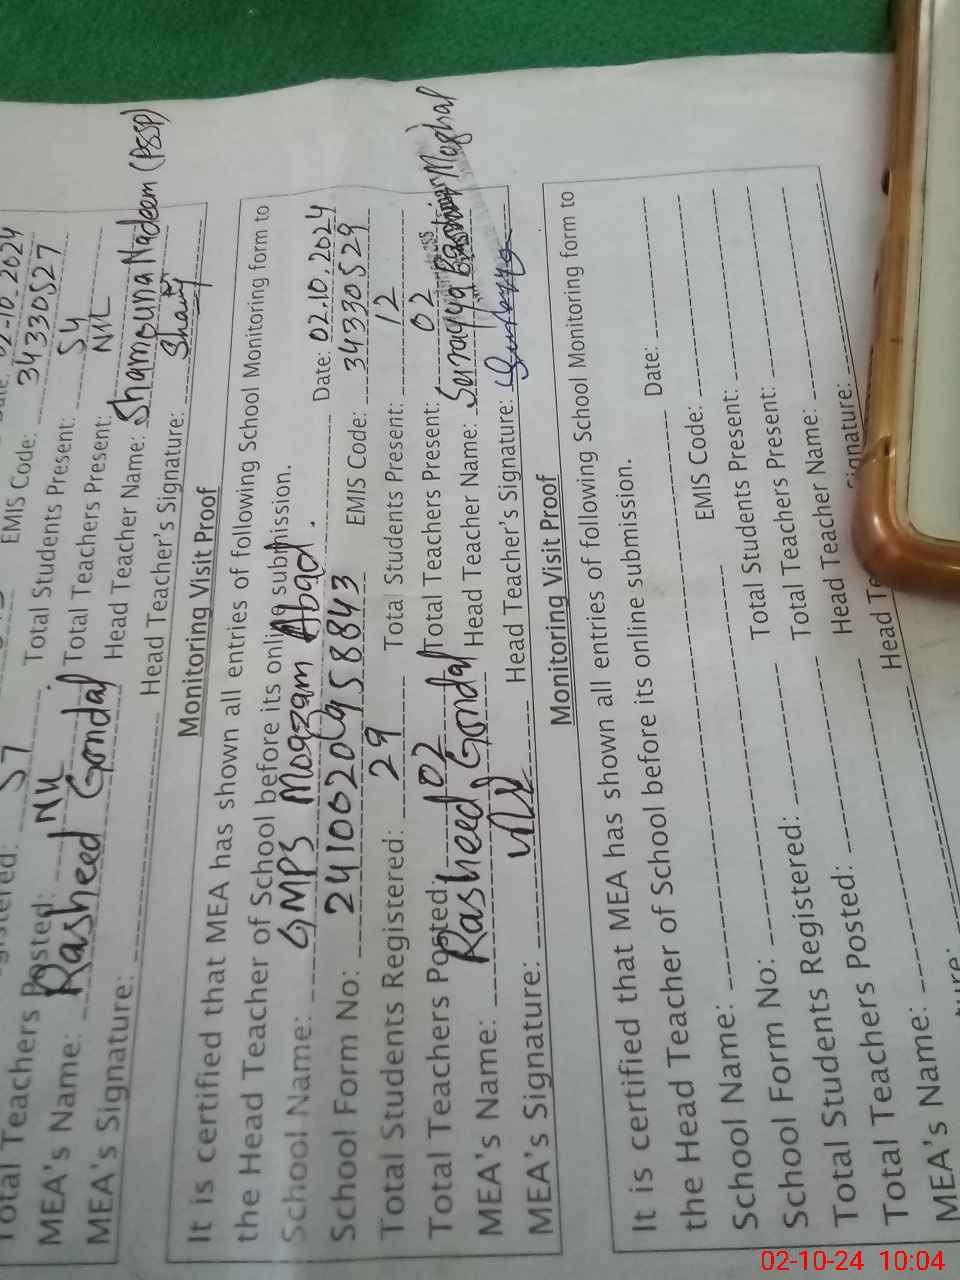 02.10.2024
EMIS Code: 34330527
Total Students Present: 54
Total Teachers Posted: NIL Total Teachers Present: NIL
MEA's Name: Rasheed Gondal Head Teacher Name: Shamouna Nadeem (PSSP)
MEA's Signature: Head Teacher's Signature:
Monitoring Visit Proof
It is certified that MEA has shown all entries of following School Monitoring form to
the Head Teacher of School before its online submission.
School Name: GMPS Moazzam Abad. Date: 02.10.2024
School Form No: 2410020958843 EMIS Code: 34330529
Total Students Registered: 29 Total Students Present: 12
Total Teachers Posted: 02 Total Teachers Present: 02
MEA's Name: Rasheed Gondal Head Teacher Name: Surayya Moghal
MEA's Signature: Head Teacher's Signature:
Monitoring Visit Proof
It is certified that MEA has shown all entries of following School Monitoring form to
the Head Teacher of School before its online submission.
School Name: Date:
School Form No: EMIS Code:
Total Students Registered: Total Students Present:
Total Teachers Posted: Total Teachers Present:
MEA's Name: Head Teacher Name:
02-10-24 10:04